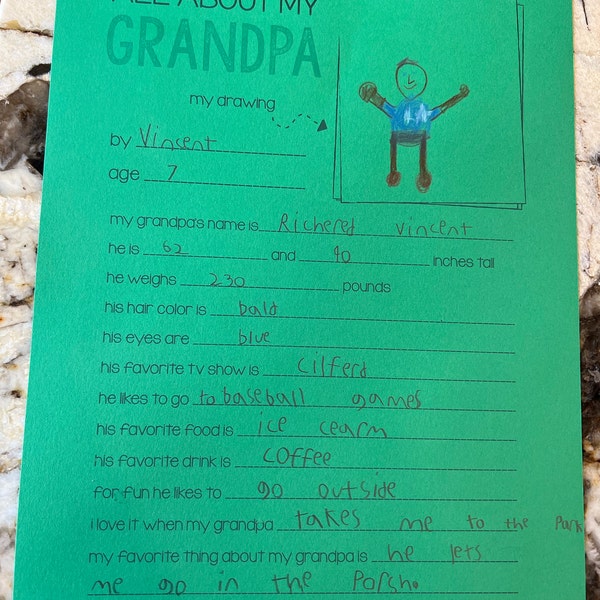 ALL ABOUT MY
GRANDPA
my drawing
by Vincent
age 7
my grandpa's name is Richered vincent
he is 62 and 90 inches tall
he weighs 230 pounds
his hair color is bald
his eyes are blue
his favorite tv show is Cilferd
he likes to go to baseball games
his favorite food is ice cearm
his favorite drink is coffee
for fun he likes to go outside
i love it when my grandpa takes me to the Park
my favorite thing about my grandpa is he lets
me go in the Porsho